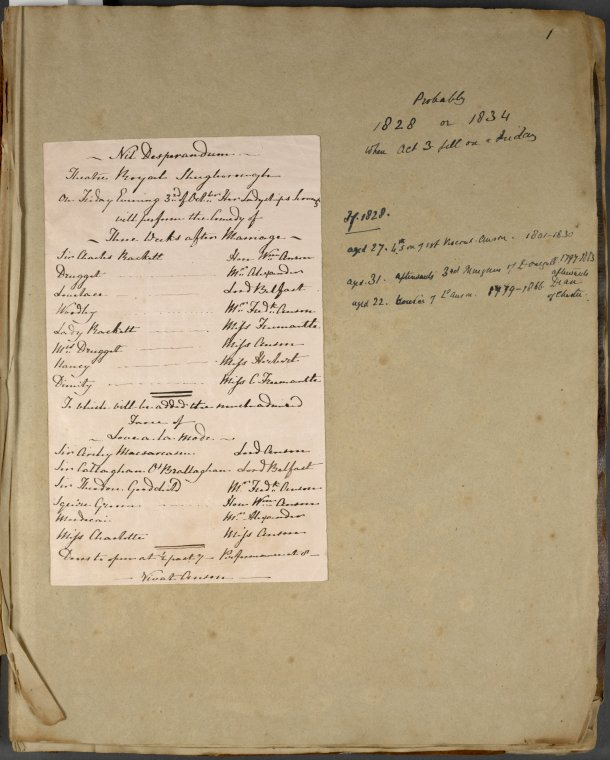 1
Probably
1828 or 1834
when Oct 3 fell on a Friday
~ Nil Desperandum ~
Theatre Royal Shugborough
On Friday Evening 3rd of Octbr Her Ladyships
will perform the Comedy of
~ Three Weeks after Marriage ~
Sir Charles Rackett Hon Wm Anson
Drugget Mr Alexander
Lovelace Lord Belfast
Woodley Mr Fredk Anson
Lady Rackett Miss Fremantle
Mrs Drugget Miss Anson
Nancy Miss Herbert
Dimity Miss C Fremantle
To which will be added the much admired
Farce of
~ Love a la mode ~
Sir Archy Macsarcasm Lord Anson
Sir Callaghan O'Brallaghan Lord Belfast
Sir Theodore Goodchild Mr Fredk Anson
Squire Groom Hon Wm Anson
Mordecai Mr Alexander
Miss Charlotte Miss Anson
Doors to open at ½ past 7 Performance at 8
~ Vivat Anson ~
If 1828.
aged 27. 4th son of 1st Viscount Anson. 1801-1830
aged 31. afterwards 3rd Marquess of Donegall 1797-1883
aged 22. Cousin of Ld Anson. 1779-1866 afterwards Dean of Chester.